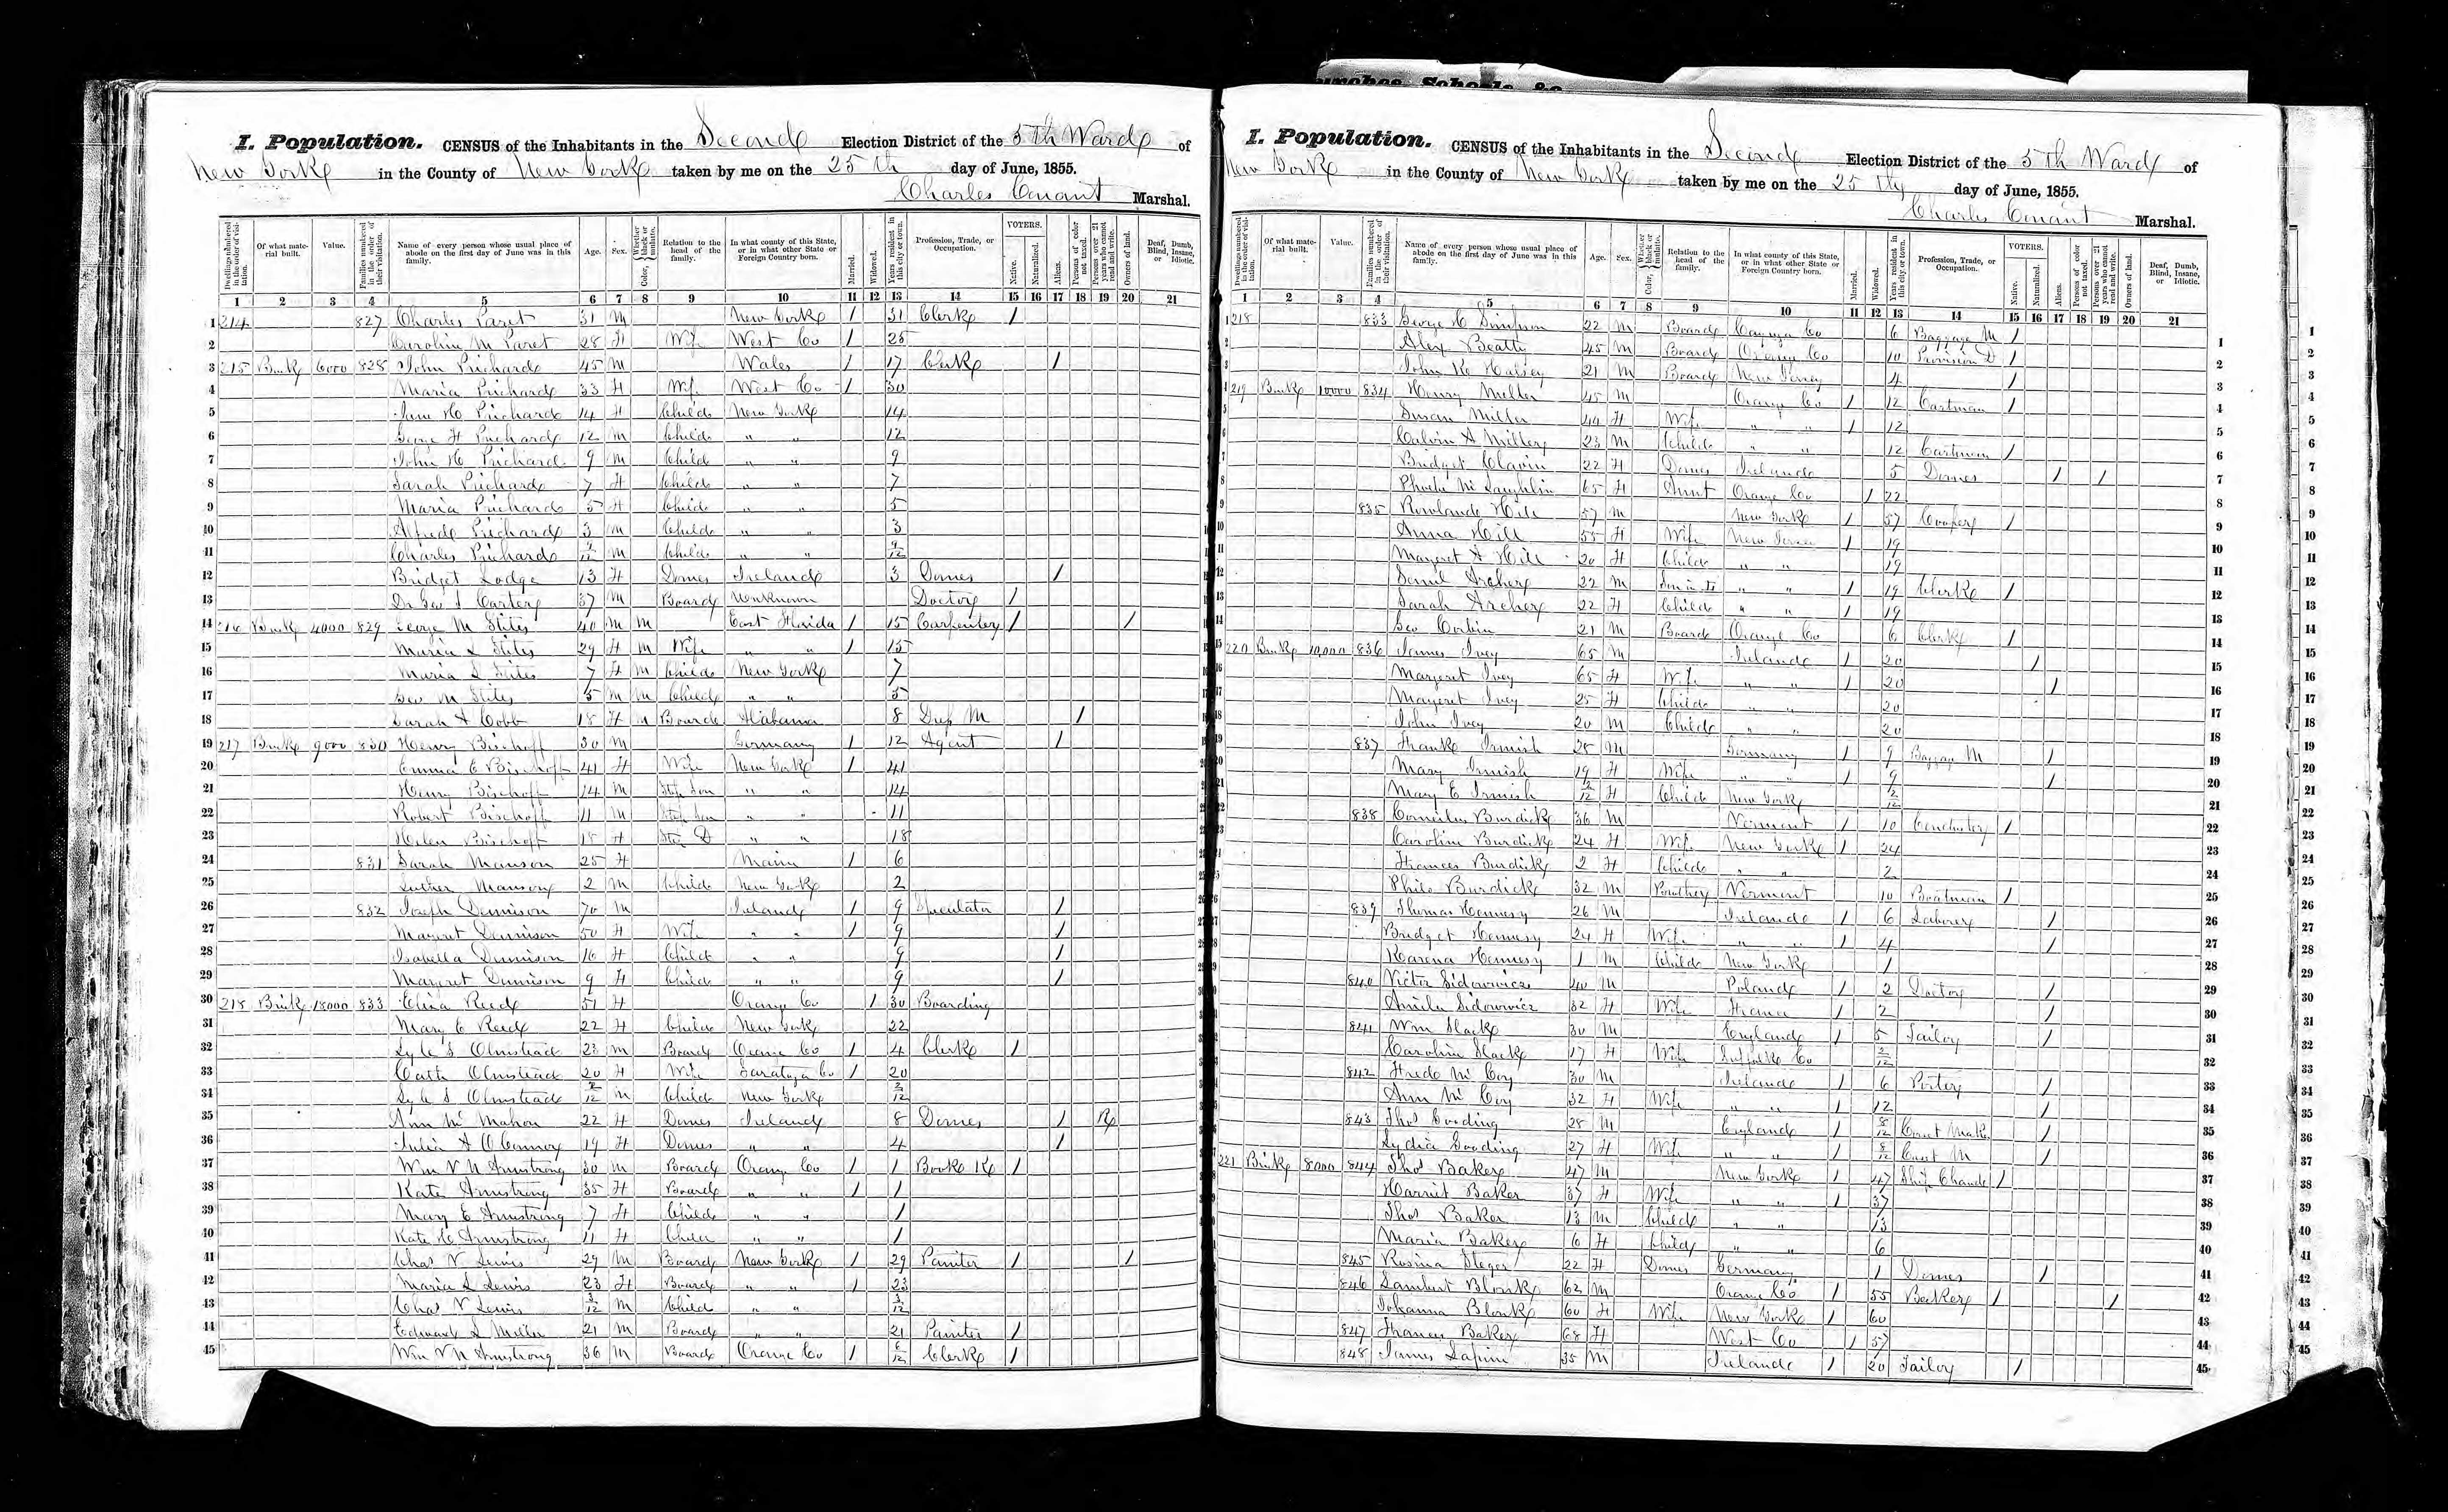 Churches, Schools, &c
I. Population. CENSUS of the Inhabitants in the Second Election District of the 5th Ward of
New York in the County of New York taken by me on the 25th day of June, 1855.
Charles Conant Marshal.
Dwellings numbered in the order of visitation. Of what material built. Value. Families numbered in the order of their visitation. Name of every person whose usual place of abode on the first day of June was in this family. Age. Sex. Color, Whether black or mulatto. Relation to the head of the family. In what county of this State, or in what other State or Foreign Country born. Married. Widowed. Years resident in this city or town. Profession, Trade, or Occupation. VOTERS. Native. Naturalized. Aliens. Persons of color not taxed. Persons over 21 years who cannot read and write. Owners of land. Deaf, Dumb, Blind, Insane, or Idiotic.
1 2 3 4 5 6 7 8 9 10 11 12 13 14 15 16 17 18 19 20 21
1 214 827 Charles Paret 31 M New York 1 31 Clerk 1
2 Caroline M Paret 28 F Wife West Co 1 25
3 215 Brick 6000 828 John Prichard 45 M Wales 1 17 Clerk 1
4 Maria Prichard 33 F Wife West Co 1 30
5 Jane H Prichard 14 F Child New York 14
6 George H Prichard 12 M Child " " 12
7 John H Prichard 9 M Child " " 9
8 Sarah Prichard 7 F Child " " 7
9 Maria Prichard 5 F Child " " 5
10 Alfred Prichard 3 M Child " " 3
11 Charles Prichard 9/12 M Child " " 9/12
12 Bridget Lodge 13 F Domes Ireland 3 Domes 1
13 Dr Geo Carter 37 M Board Unknown Doctor 1
14 216 Brick 4000 829 George M Stites 40 M M East Florida 1 15 Carpenter 1 1
15 Maria L Stites 29 F M Wife " " 1 15
16 Maria L Stites 7 F M Child New York 7
17 Geo M Stites 5 M M Child " " 5
18 Sarah A Cobb 18 F M Board Alabama 8 Dress M 1
19 217 Brick 9000 830 Henry Bischoff 30 M Germany 1 12 Agent 1
20 Emma C Bischoff 41 F Wife New York 1 41
21 Henry Bischoff 14 M Step Son " " 14
22 Robert Bischoff 11 M Step Son " " 11
23 Helen Bischoff 18 F Step D " " 18
24 831 Sarah Manson 25 F Main 1 6
25 Luther Manson 2 M Child New York 2
26 832 Joseph Dennison 70 M Ireland 1 9 Speculator 1
27 Margret Dennison 50 F Wife " " 1 9 1
28 Isabella Dennison 16 F Child " " 9 1
29 Margret Dennison 9 F Child " " 9 1
30 218 Brick 18000 833 Eliza Reed 51 F Orange Co 1 30 Boarding
31 Mary C Reed 22 F Child New York 22
32 Lyle S Olmstead 23 M Board Orange Co 1 4 Clerk 1
33 Cath Olmstead 20 F Wife Saratoga Co 1 20
34 Lyle S Olmstead 2/12 M Child New York 2/12
35 Ann McMahon 22 F Domes Ireland 8 Domes 1
36 Julia A OConnor 19 F Domes " " 4 1
37 Wm V N Armstrong 30 M Board Orange Co 1 1 Book K 1
38 Kate Armstrong 35 F Board " " 1 1
39 Mary E Armstrong 7 F Child " " 1
40 Kate H Armstrong 11 F Child " " 1
41 Chas V Lewis 29 M Board New York 1 29 Painter 1 1
42 Maria L Lewis 23 F Board " " 1 23
43 Chas V Lewis 3/12 M Child " " 3/12
44 Edward L Miller 21 M Board " " 21 Painter 1
45 Wm V N Armstrong 36 M Board Orange Co 1 6/12 Clerk 1
I. Population. CENSUS of the Inhabitants in the Second Election District of the 5th Ward of
New York in the County of New York taken by me on the 25th day of June, 1855.
Charles Conant Marshal.
Dwellings numbered in the order of visitation. Of what material built. Value. Families numbered in the order of their visitation. Name of every person whose usual place of abode on the first day of June was in this family. Age. Sex. Color, Whether black or mulatto. Relation to the head of the family. In what county of this State, or in what other State or Foreign Country born. Married. Widowed. Years resident in this city or town. Profession, Trade, or Occupation. VOTERS. Native. Naturalized. Aliens. Persons of color not taxed. Persons over 21 years who cannot read and write. Owners of land. Deaf, Dumb, Blind, Insane, or Idiotic.
1 2 3 4 5 6 7 8 9 10 11 12 13 14 15 16 17 18 19 20 21
1 218 833 George C Simpson 22 M Board Cayuga Co 6 Baggage M 1
2 Alex Beatt 45 M Board Orange Co 10 Provision D 1
3 John K Halsey 21 M Board New Jersey 4 1
4 219 Brick 10000 834 Henry Miller 45 M Orange Co 1 12 Cartman 1
5 Susan Miller 44 F Wife " " 1 12
6 Calvin A Miller 23 M Child " " 12 Cartman 1
7 Bridget Clavin 22 F Domes Ireland 5 Domes 1 1
8 Phoebe McLaughlin 65 F Aunt Orange Co 1 22
9 835 Rowland Hill 57 M New York 1 57 Cooper 1
10 Anna Hill 55 F Wife New Jersey 1 19
11 Margeret A Hill 20 F Child " " 19
12 Saml Archer 22 M Son in L " " 1 19 Clerk 1
13 Sarah Archer 22 F Child " " 1 19
14 Geo Corbin 21 M Board Orange Co 6 Clerk 1
15 220 Brick 10,000 836 James Ivey 65 M Ireland 1 20 1
16 Margeret Ivey 65 F Wife " " 1 20 1
17 Margeret Ivey 25 F Child " " 20
18 John Ivey 20 M Child " " 20
19 837 Frank Irmish 28 M Germany 1 9 Baggage M 1
20 Mary Irmish 19 F Wife " " 1 9 1
21 Mary E Irmish 2/12 F Child New York 2/12
22 838 Cornelius Burdick 36 M Vermont 1 10 Conductor 1
23 Caroline Burdick 24 F Wife New York 1 24
24 Frances Burdick 2 F Child " " 2
25 Philo Burdick 32 M Brother Vermont 10 Boatman 1
26 839 Thomas Hennesy 26 M Ireland 1 6 Laborer 1
27 Bridget Hennesy 24 F Wife " " 1 4 1
28 Karena Hennesy 1 M Child New York 1
29 840 Victor Sidorowicz 40 M Poland 1 2 Doctor 1
30 Amelia Sidorowicz 32 F Wife France 1 2 1
31 841 Wm Slack 30 M England 1 5 Tailor 1
32 Caroline Slack 17 F Wife Suffolk Co
33 842 Fred McCoy 30 M Ireland 1 6 Porter 1
34 Ann McCoy 32 F Wife " " 1 12 1
35 843 Thos Gooding 28 M England 1 8/12 1
36 Lydia Gooding 27 F Wife " " 1 8/12 1
37 221 Brick 8000 844 Thos Baker 47 M New York 1 47 Ship Chand 1
38 Harriet Baker 37 F Wife " " 1 37
39 Thos Baker 13 M Child " " 13
40 Maria Baker 6 F Child " " 6
41 845 Rosina Steger 22 F Domes Germany 1 Domes 1
42 846 Lambert Blonk 62 M Orange Co 1 55 Baker 1 1
43 Johanna Blonk 60 F Wife New York 1 60
44 847 Frances Baker 68 F West Co 1 57
45 848 James Lapin 35 M Ireland 1 20 Tailor 1